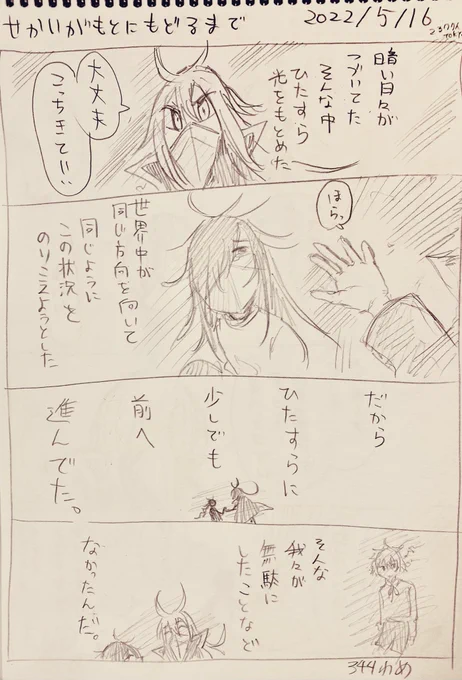 せかいがもとにもどるまで
2022/5/16
暗い日々が
つづいてた
そんな中
ひたすら
光をもとめた
大丈夫
こっちきて!!
ほらっ
世界中が
同じ方向を向いて
同じように
この状況を
のりこえようとした
だから
ひたすらに
少しでも
前へ
進んでた。
そんな
我々が
無駄に
したことなど
なかったんだ。
344わめ